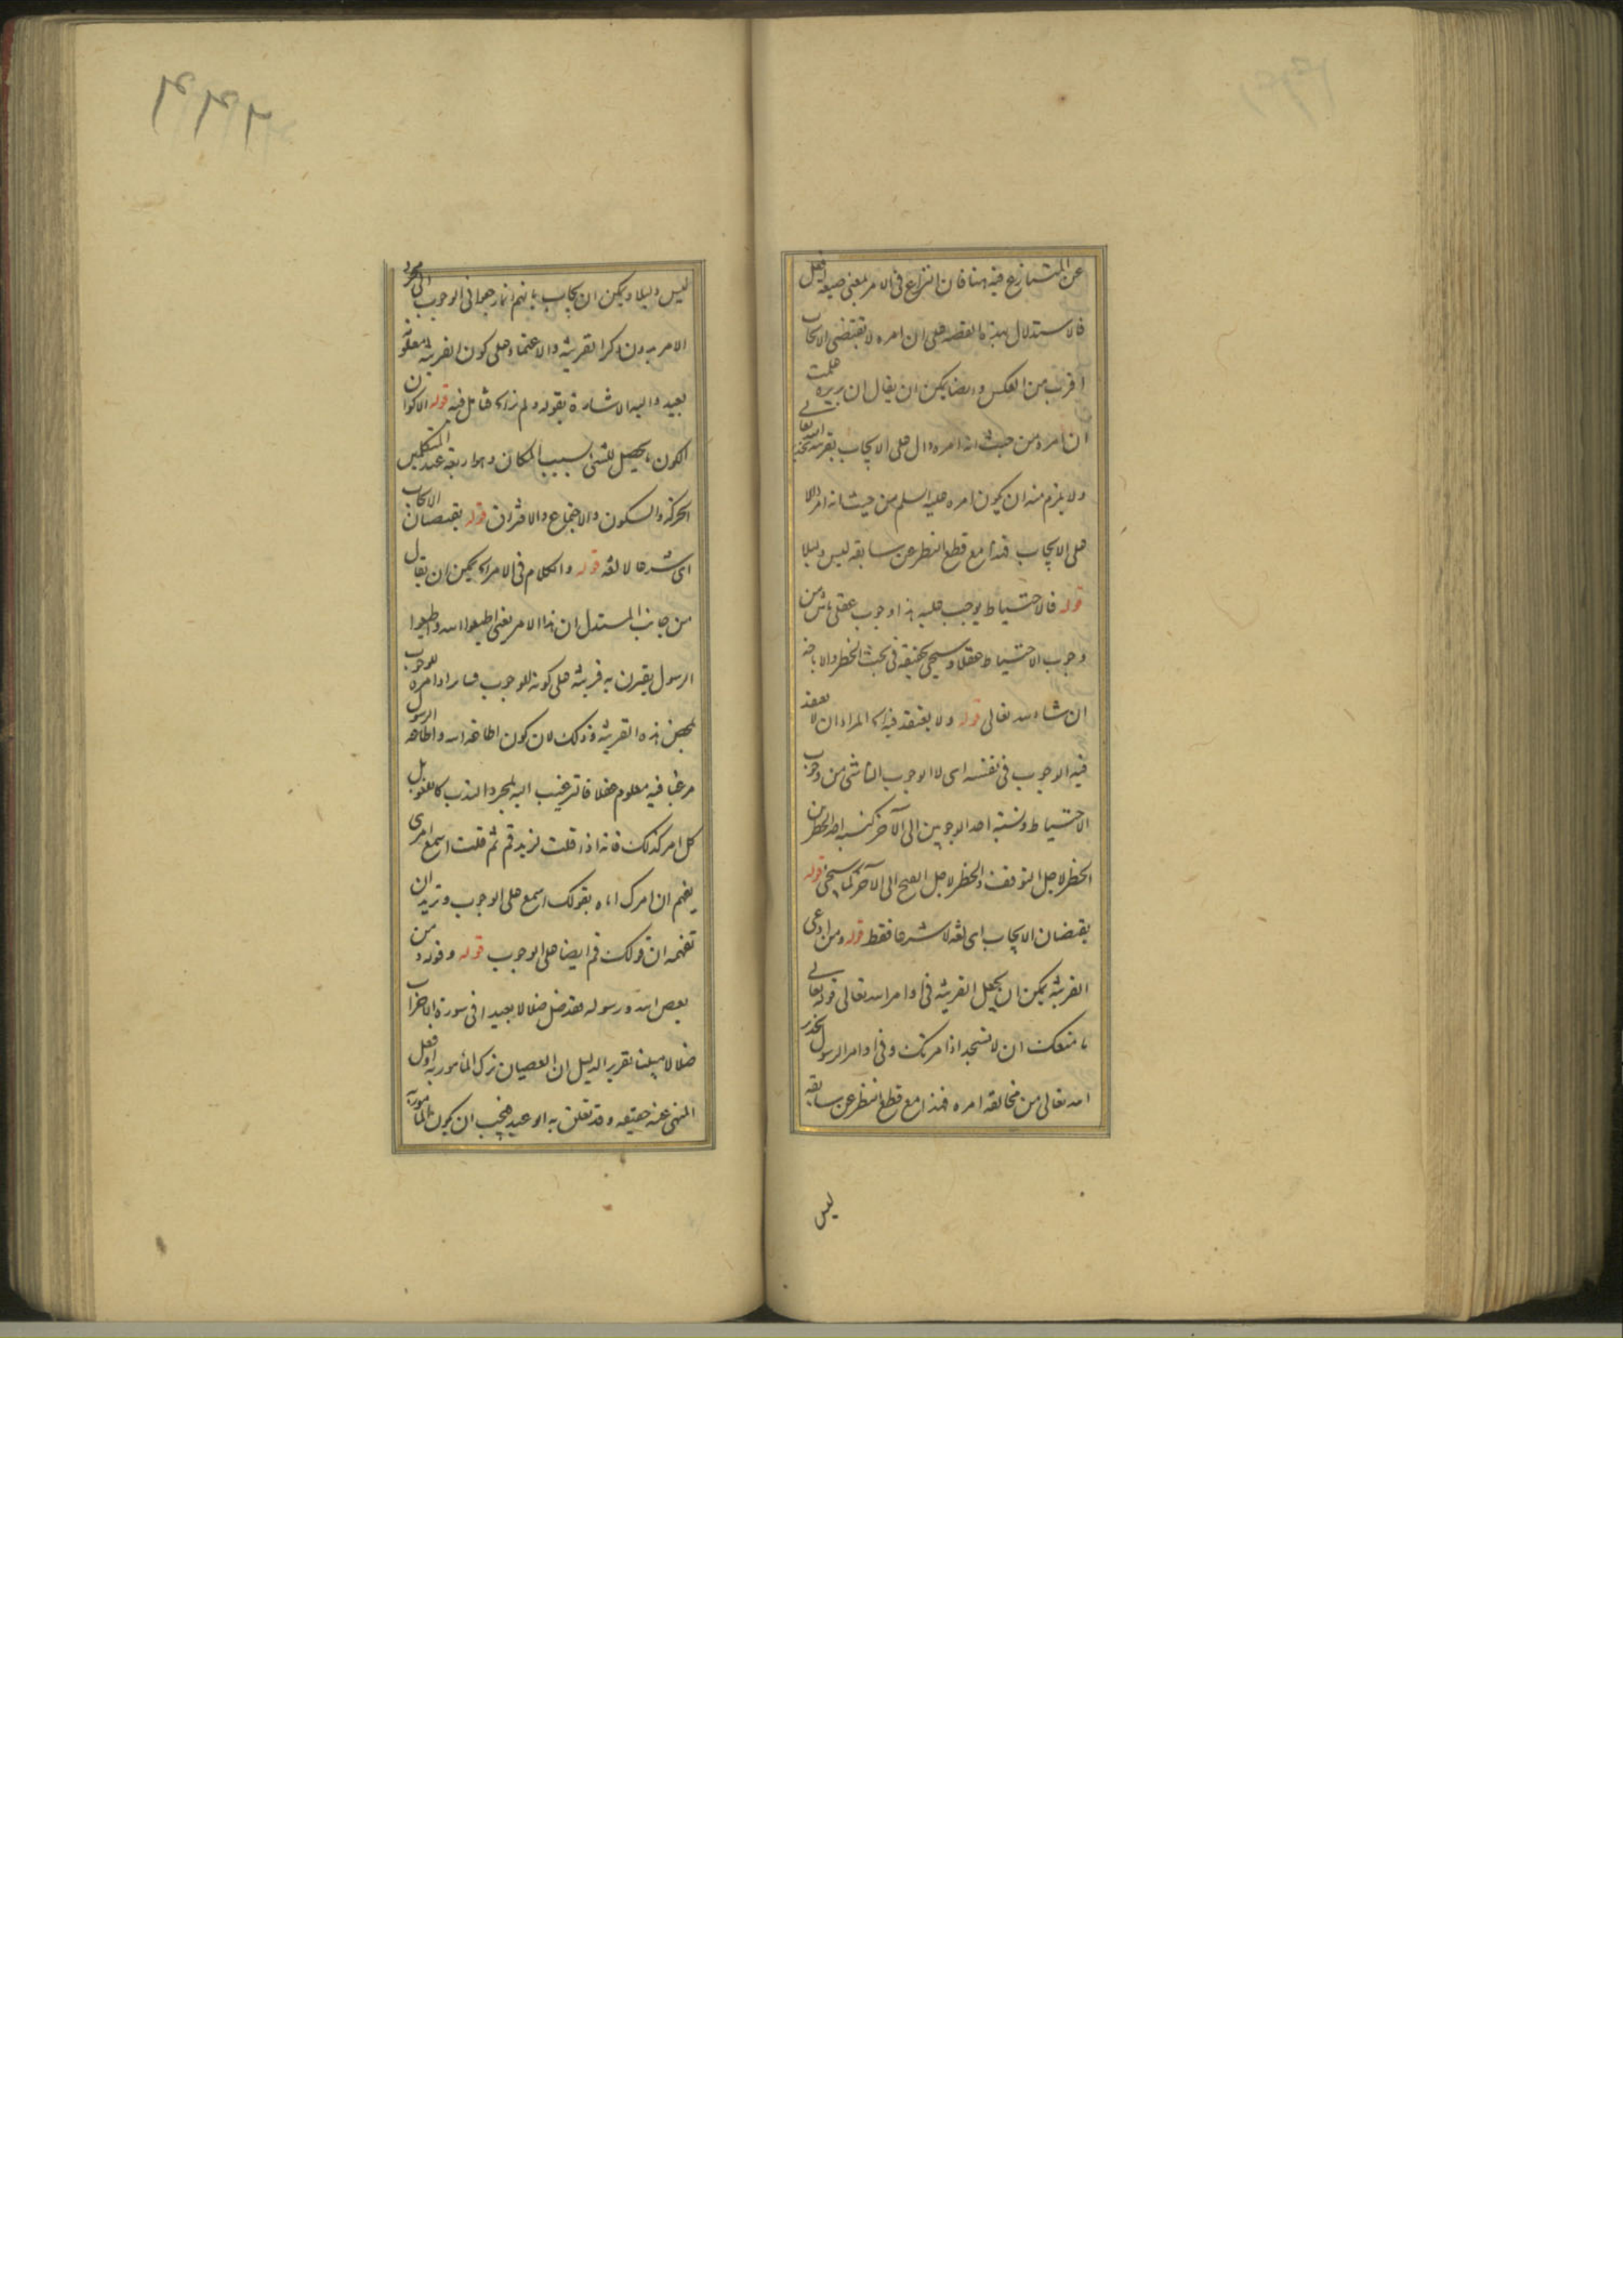 عن المتنازع فيه هنا فان النزاع فى الامر بمعنى صيغة افعل
فالاستدلال بهذه القصة على ان امره لا تقتضى الايجاب
اقرب من العكس وايضا يمكن ان يقال ان بريرة علمت
ان امره من حيث انه امره دال على الايجاب بقرينة
ولا يلزم منه ان يكون امره عليه السلم من حيث انه امر دالا
على الايجاب فهذا مع قطع النظر عن سابقه ليس دليلا
قوله فالاحتياط يوجب حليه هذا وجوب عقلى ناش من
وجوب الاحتياط عقلا وسيجى تحقيقه فى بحث الحظر والاباحة
ان شاء الله تعالى قوله ولا يعتقد فيه المراد ان لا يعتقد
فيه الوجوب فى نفسه اى لا الوجوب الناشى من وجوب
الاحتياط ونسبة احد الوجوبين الى الآخر كنسبة احد الحظرين
الحظر لاجل التوقف والحظر لاجل القبح الى الآخر كما سيجى قوله
يقتضيان الايجاب اى لغة لا شرعا فقط قوله ومن ادعى
القرينة يمكن ان يجعل القرينة فى اوامر الله تعالى قوله تعالى
ما منعك ان لا تسجد اذ امرتك وفى اوامر الرسول
الله تعالى من مخالفة امره فهذا مع قطع النظر عن سابقه
ليس
ليس دليلا ويمكن ان يجاب بانهم انما رجعوا فى الوجوب الى مجرد
الامر بدون ذكر القرينة والاعتماد على كون القرينة معلومة
بعيد واليه الاشارة بقوله ولم نزاع فتامل فيه قوله الاكوان
الكون ما يحصل للشئ بسبب المكان وهو اربعة عند المتكلمين
الحركة والسكون والاجتماع والافتراق قوله يقتضيان الايجاب
اى شرعا لا لغة قوله والكلام فى الامر يمكن ان يقال
من جانب المستدل ان هذا الامر يعنى اطيعوا الله واطيعوا
الرسول يقترن به قرينة على كونه للوجوب فسائر اوامره للوجوب
بمحض هذه القرينة وذلك لان كون اطاعة الله واطاعة الرسول
مرغبا فيه معلوم عقلا فالترغيب اليه بمجرد الندب كاللغو بل
كل امر كذلك فانه اذا قلت لزيد قم ثم قلت اسمع امرى
يفهم ان امرك اياه بقولك اسمع على الوجوب وتريد ان
تفهمه ان قولك قم ايضا على الوجوب قوله وقوله ومن
يعص الله ورسوله فقد ضل ضلالا بعيدا فى سورة الاحزاب
ضلالا مبينا تقرير الدليل ان العصيان ترك المأمور به او فعل
المنهى عنه حقيقة وقد تعلق به الوعيد فيجب ان يكون المأمور به